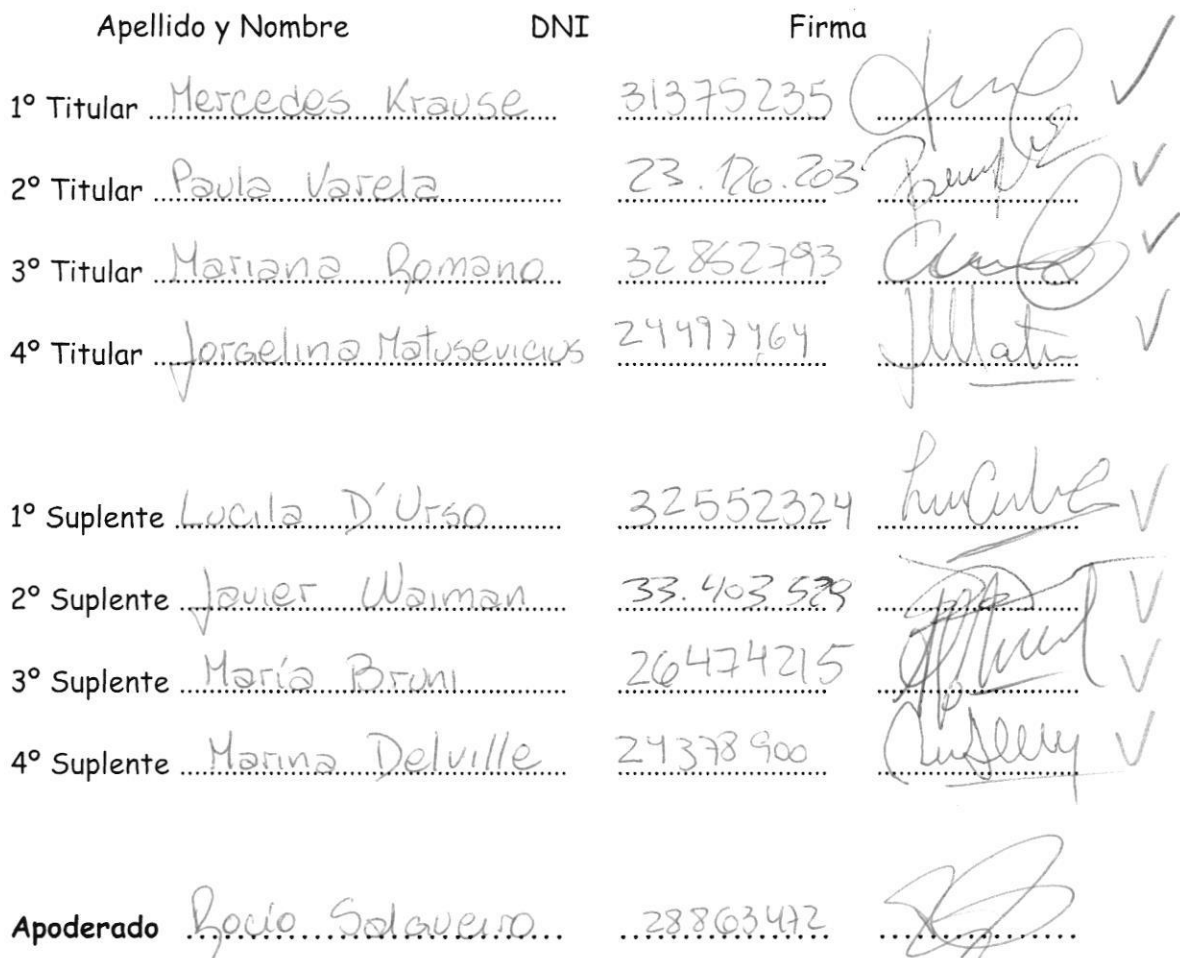 Apellido y Nombre DNI Firma
1° Titular Mercedes Krause 31375235
2° Titular Paula Varela 23.126.203
3° Titular Mariana Romano 32862793
4° Titular Jorgelina Matusevicius 24497464
1° Suplente Lucila D'Urso 32552324
2° Suplente Javier Waiman 33.403.529
3° Suplente María Bruni 26474215
4° Suplente Marina Delville 24378900
Apoderado Rocío Salgueiro 28863472